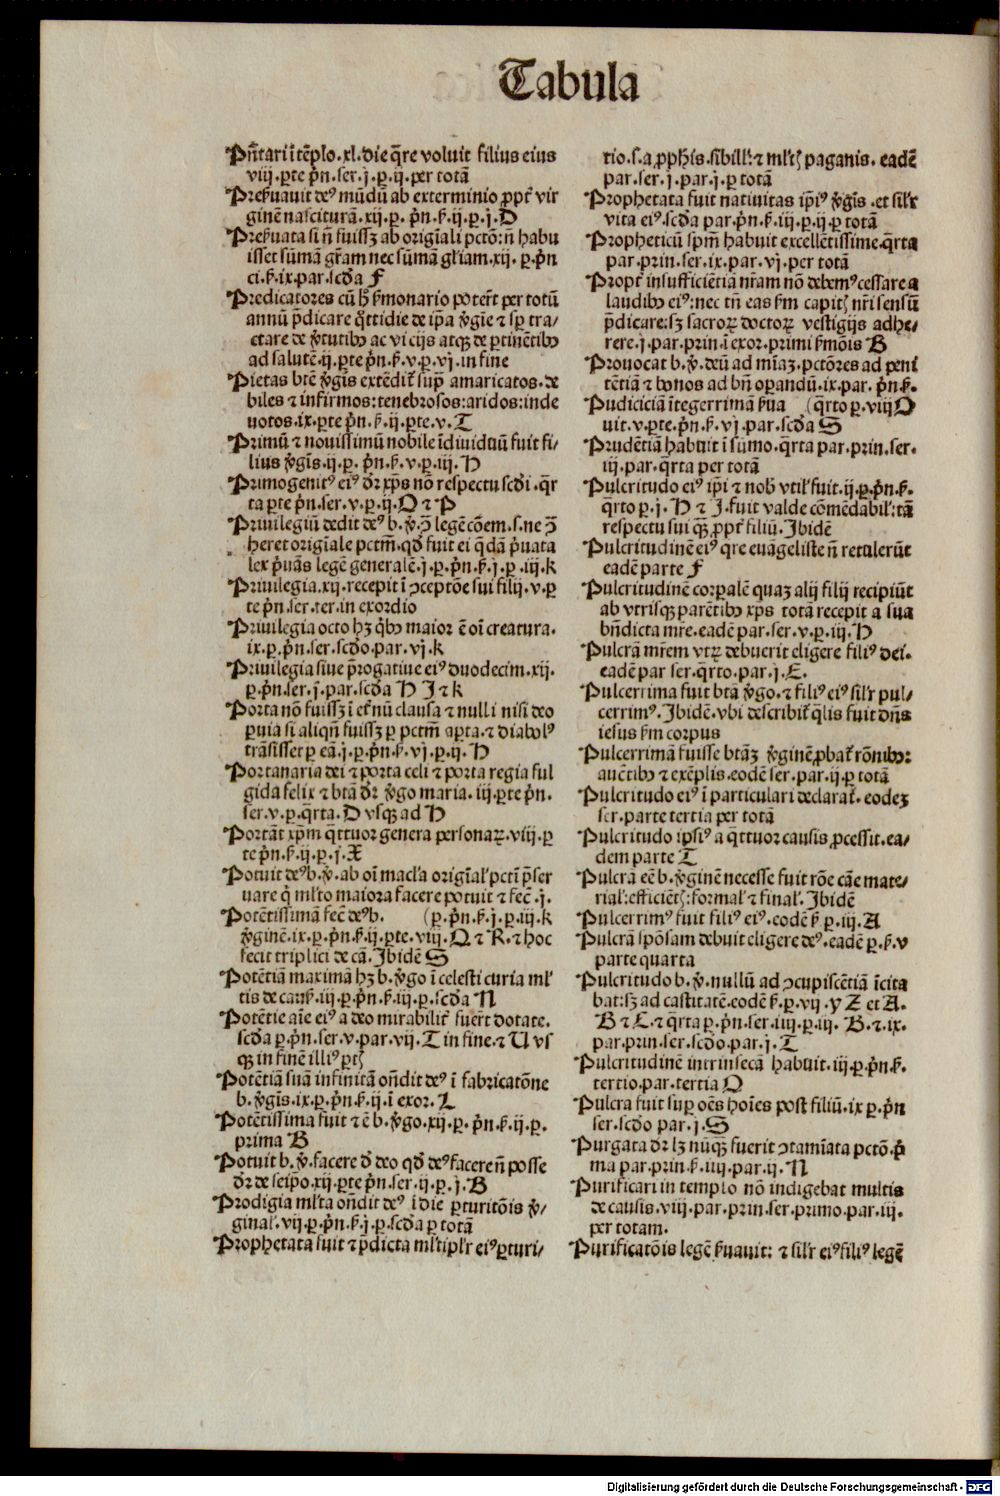 Tabula
Pñtari ī tēplo. xl. die q̄re voluit filius eius
viij. ꝑte p̄n. ser. j. p. ij. per totā
Preẜuauit deꝰ mūdū ab exterminio ꝓpt̄ vir
ginē nasciturā. xij. p. p̄n. ẜ. ij. p. j. D
Preẜuata si ñ fuissꝫ ab origīali pctō: ñ habu
isset sūmā gr̄am nec sūmā gl̄iam. xij. p. p̄n
ci. ẜ. ix. par. scd̄a F
Predicatores cū h̄ ẜmonario poter̄t per totū
annū p̄dicare q̄ttidie de ip̄a v̄gīe ⁊ sꝑ tra/
ctare de v̄tutibꝰ ac vicijs atqꝫ de ꝑtinētibꝰ
ad salutē. ij. ꝑte p̄n. ẜ. v. p. vj. in fine
Pietas btē v̄gīs extēdit̄ suꝑ amaricatos. de
biles ⁊ infirmos: tenebrosos: aridos: inde
uotos. ix. ꝑte p̄n. ẜ. ij. ꝑte. v. T
Primū ⁊ nouissimū nobile īdiuiduū fuit fi/
lius v̄gīs. ij. p. p̄n. ẜ. v. p. iij. H
Primogenitꝰ eiꝰ dr̄ xp̄s nō respectu scd̄i. q̄r
ta ꝑte p̄n. ser. v. p. ij. O ⁊ P
Priuilegiū dedit deꝰ b. v̄. ꝯ̄ legē cōem. s. ne ꝯ̄
heret origīale pctm̄. qd̄ fuit ei q̄dā p̄uata
lex p̄uās legē generalē. j. p. p̄n. ẜ. j. p. iij. K
Priuilegia. xij. recepit ī ꝯceptōe sui filij. v. p
te p̄n. ser. ter. in exordio
Priuilegia octo hꝫ q̄bꝰ maior ē oī creatura.
ix. p. p̄n. ser. scd̄o. par. vj. K
Priuilegia siue p̄rogatiue eiꝰ duodecim. xij.
p. p̄n. ser. j. par. scd̄a H I ⁊ K
Porta nō fuissꝫ ī et̄nū clausa ⁊ nulli nisi deo
ꝑuia si aliqñ fuissꝫ ꝑ pctm̄ aꝑta. ⁊ diabolꝰ
trāsisset ꝑ eā. j. p. p̄n. ẜ. vj. p. ij. H
Portanaria dei ⁊ porta celi ⁊ porta regia ful
gida felix ⁊ btā dr̄ v̄go maria. iij. ꝑte p̄n.
ser. v. p. q̄rta. D vsqꝫ ad H
Portāt xp̄m q̄ttuor genera personaꝝ. viij. p
te p̄n. ẜ. ij. p. j. X
Potuit deꝰ b. v̄. ab oī macl̄a origīal' pctī p̄ser
uare q̄ ml̄to maiora facere potuit ⁊ fec̄. j.
Potētissimā fec̄ deꝰ b. (p. p̄n. ẜ. j. p. iij. K
v̄ginē. ix. p. p̄n. ẜ. ij. ꝑte. viij. Q ⁊ R. ⁊ hoc
fecit triplici de cā. Ibidē S
Potētiā maximā hꝫ b. v̄go ī celesti curia ml̄
tis de cauẜ. iij. p. p̄n. ẜ. iij. p. scd̄a N
Potētie aīe eiꝰ a deo mirabilit̄ fuer̄t dotate.
scd̄a p. p̄n. ser. v. par. vij. T in fine. ⁊ U vs
qꝫ in finē illiꝰ ꝑtꝭ
Potētiā suā infinitā oñdit deꝰ ī fabricatōne
b. v̄gīs. ix. p. p̄n. ẜ. ij. ī exor. L
Potētissima fuit ⁊ ē b. v̄go. xij. p. p̄n. ẜ. ij. p.
prima B
Potuit b. v̄. facere d̄ deo qd̄ deꝰ facere ñ posse
dr̄ de seip̄o. xij. ꝑte p̄n. ser. ij. p. j. B
Prodigia ml̄ta oñdit deꝰ ī die ꝑturitōis v̄/
ginal'. vij. p. p̄n. ẜ. j. p. scd̄a ꝑ totā
Prophetata fuit ⁊ p̄dicta ml̄tipl'r eiꝰ ꝑturi/
tio. s. a ꝓph̄is. sibill': ⁊ ml̄tꝭ paganis. eadē
par. ser. j. par. j. ꝑ totā
Prophetata fuit natiuitas ip̄iꝰ v̄gīs. et sil'r
vita eiꝰ. scd̄a par. p̄n. ẜ. iij. p. ij. ꝑ totā
Propheticū sp̄m habuit excellētissime. q̄rta
par. prin. ser. ix. par. vj. per totā
Propt̄ insufficiētiā nr̄am nō debemꝰ cessare a
laudibꝰ eiꝰ: nec tñ eas ẜm capitꝭ nr̄i sensū
p̄dicare: sꝫ sacroꝝ doctoꝝ vestigijs adhe/
rere. j. par. prin. ī exor. primi ẜmōis B
Prouocat b. v̄. deū ad mīaꝫ. pctōres ad peni
tētiā ⁊ bonos ad bñ oꝑandū. ix. par. p̄n. ẜ.
Pudiciciā ītegerrimā ẜua (q̄rto p. viij O
uit. v. ꝑte. p̄n. ẜ. vj. par. scd̄a S
Prudētiā habuit ī sūmo. q̄rta par. prin. ser.
iij. par. q̄rta per totā
Pulcritudo eiꝰ ip̄i ⁊ nob̄ vtil' fuit. ij. p. p̄n. ẜ.
q̄rto p. j. H ⁊ I. fuit valde cōmēdabil': tā
respectu sui qꝫ̄ ꝓpt̄ filiū. Ibidē
Pulcritudinē eiꝰ q̄re euāgeliste ñ retuler̄ūt
eadē parte F
Pulcritudinē corꝑalē quaꝫ alij filij recipiūt
ab vtrisqꝫ parētibꝰ xp̄s totā recepit a sua
bñdicta mr̄e. eadē par. ser. v. p. iij. H
Pulcrā mr̄em vtꝝ debuerit eligere filiꝰ dei.
eadē par ser. q̄rto. par. j. E.
Pulcerrima fuit btā v̄go. ⁊ filiꝰ eiꝰ sil'r pul/
cerrimꝰ. Ibidē. vbi describit̄ q̄lis fuit dn̄s
iesus ẜm corpus
Pulcerrimā fuisse btāꝫ v̄ginē ꝓbat̄ rōnibꝰ:
auētibꝰ ⁊ exēplis. eodē ser. par. ij. ꝑ totā
Pulcritudo eiꝰ ī particulari declarat̄. eodeꝫ
ser. parte tertia per totā
Pulcritudo ipsiꝰ a q̄ttuor causis ꝓcessit. ea/
dem parte T
Pulcrā eē b. v̄ginē necesse fuit rōe cāe mate/
rial': efficiētꝭ: formal' ⁊ final'. Ibidē
Pulcerrimꝰ fuit filiꝰ eiꝰ. eodē ẜ. p. iij. A
Pulcrā spōsam debuit eligere deꝰ. eadē p. ẜ. v
parte quarta
Pulcritudo b. v̄. nullū ad ꝯcupiscētiā īcita
bat: sꝫ ad castitatē. eodē ẜ. p. vij. y Z et A.
B ⁊ C. ⁊ q̄rta p. p̄n. ser. iiij. p. iij. B. ⁊. ix.
par. prin. ser. scd̄o. par. j. T
Pulcritudinē intrinsecā habuit. iij. p. p̄n. ẜ.
tertio. par. tertia O
Pulcra fuit suꝑ oēs hoīes post filiū. ix p. p̄n
ser. scd̄o par. j. S
Purgata dr̄ lꝫ nūqꝫ̄ fuerit ꝯtamīata pctō. p̄
ma par. prin. ẜ. iiij. par. ij. N
Purificari in templo nō indigebat multis
de causis. viij. par. prin. ser. primo. par. iij.
per totam.
Purificatōis legē ẜuauit: ⁊ sil'r eiꝰ filiꝰ legē
Digitalisierung gefördert durch die Deutsche Forschungsgemeinschaft - DFG